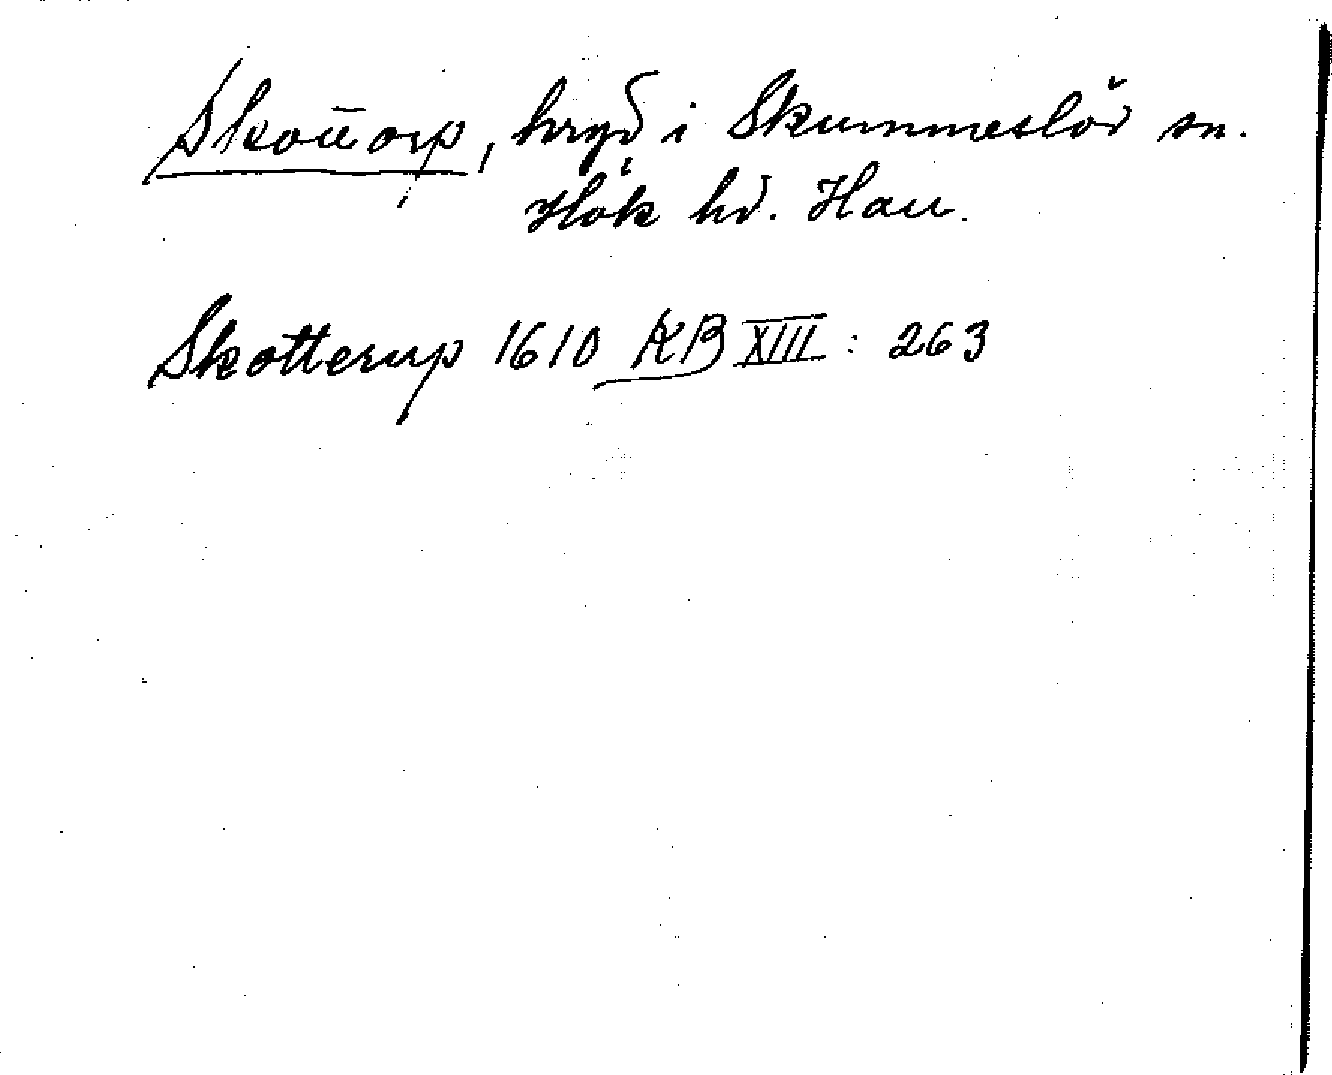 Skottorp, bryd i Skummeslöv sn.
Hök hd. Hall.
Skotterup 1610 KB XIII : 263